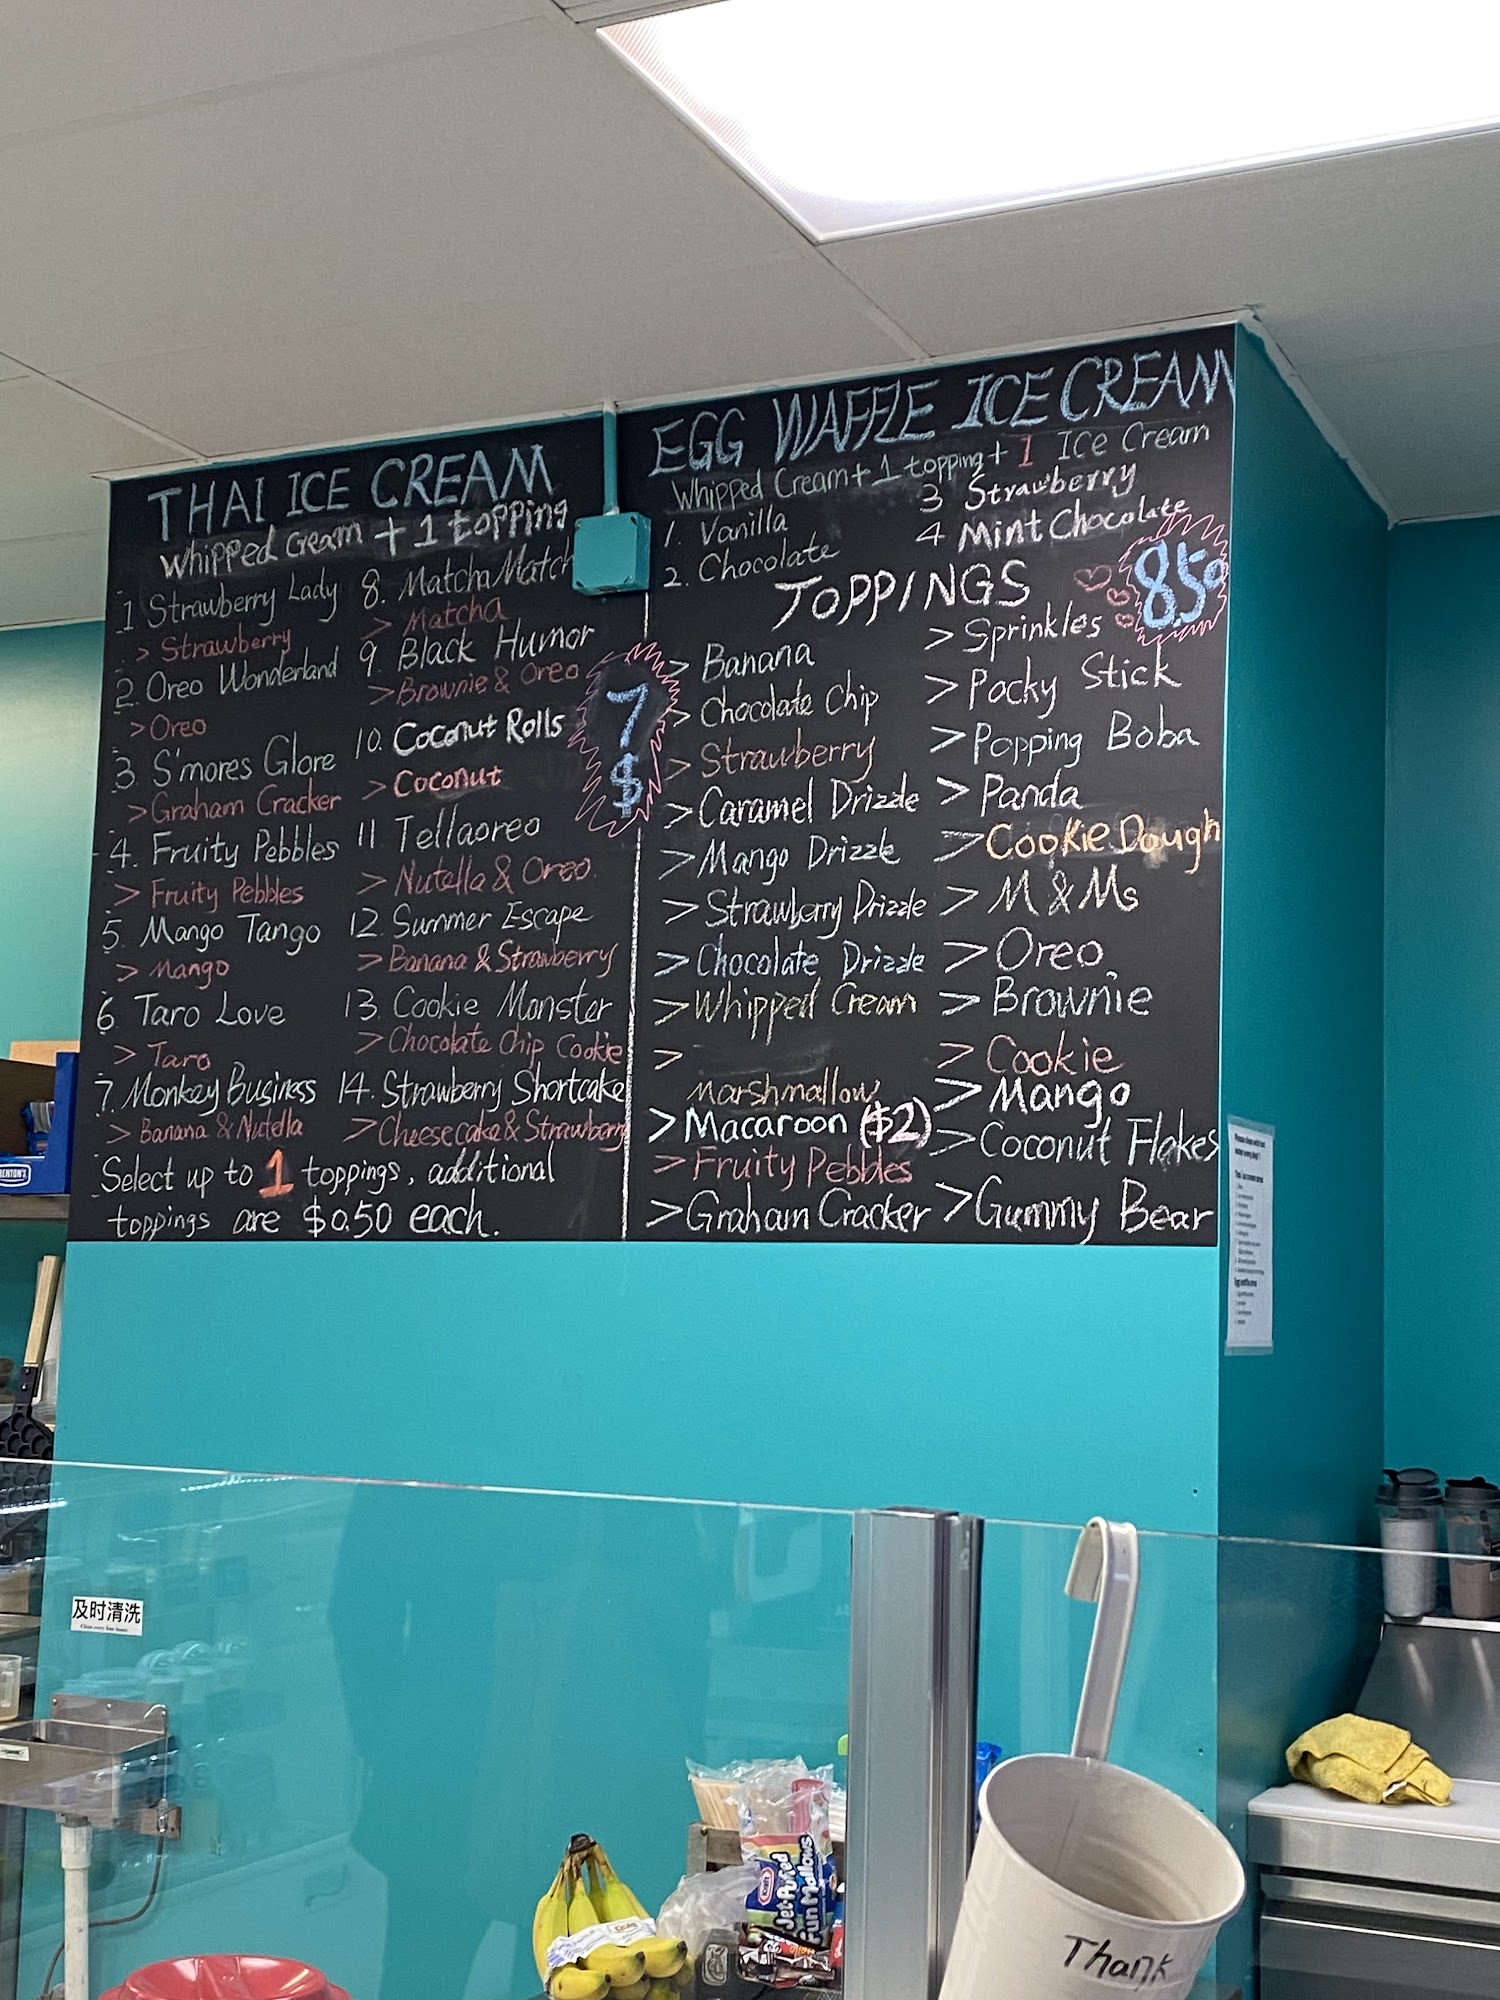 THAI ICE CREAM
Whipped Cream + 1 topping
1 Strawberry Lady
> Strawberry
2. Oreo Wonderland
> Oreo
3. S'mores Glore
> Graham Cracker
4. Fruity Pebbles
> Fruity Pebbles
5. Mango Tango
> Mango
6. Taro Love
> Taro
7. Monkey Business
> Banana & Nutella
8. Matcha Match
> Matcha
9. Black Humor
> Brownie & Oreo
10. Coconut Rolls
> Coconut
11. Tellaoreo
> Nutella & Oreo.
12. Summer Escape
> Banana & Strawberry
13. Cookie Monster
> Chocolate Chip Cookie
14. Strawberry Shortcake
> Cheesecake & Strawberry
7
$
Select up to 1 toppings, additional
toppings are $0.50 each.
EGG WAFFLE ICE CREAM
Whipped Cream + 1 topping + 1 Ice Cream
1. Vanilla
2. Chocolate
3 Strawberry
4 Mint Chocolate
8.50
TOPPINGS
> Banana
> Chocolate Chip
> Strawberry
> Caramel Drizzle
> Mango Drizzle
> Strawberry Drizzle
> Chocolate Drizzle
> Whipped Cream
>
Marshmallow
> Macaroon ($2)
> Fruity Pebbles
> Graham Cracker
> Sprinkles
> Pocky Stick
> Popping Boba
> Panda
> Cookie Dough
> M & Ms
> Oreo
> Brownie
> Cookie
> Mango
> Coconut Flakes
> Gummy Bear
及时清洗
Jet-Puffed
Fun Mallows
Thank